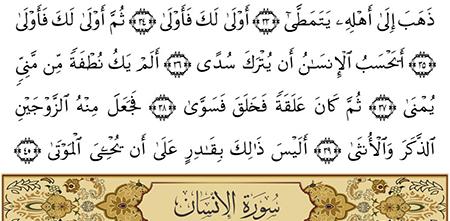 ذَهَبَ إِلَىٰٓ أَهْلِهِۦ يَتَمَطَّىٰٓ ﴿٣٣﴾ أَوْلَىٰ لَكَ فَأَوْلَىٰ ﴿٣٤﴾ ثُمَّ أَوْلَىٰ لَكَ فَأَوْلَىٰٓ
﴿٣٥﴾ أَيَحْسَبُ ٱلْإِنسَـٰنُ أَن يُتْرَكَ سُدًى ﴿٣٦﴾ أَلَمْ يَكُ نُطْفَةً مِّن مَّنِىٍّ
يُمْنَىٰ ﴿٣٧﴾ ثُمَّ كَانَ عَلَقَةً فَخَلَقَ فَسَوَّىٰ ﴿٣٨﴾ فَجَعَلَ مِنْهُ ٱلزَّوْجَيْنِ
ٱلذَّكَرَ وَٱلْأُنثَىٰٓ ﴿٣٩﴾ أَلَيْسَ ذَٰلِكَ بِقَـٰدِرٍ عَلَىٰٓ أَن يُحْـِۧىَ ٱلْمَوْتَىٰ ﴿٤٠﴾
سُورَةُ الإِنْسَانِ